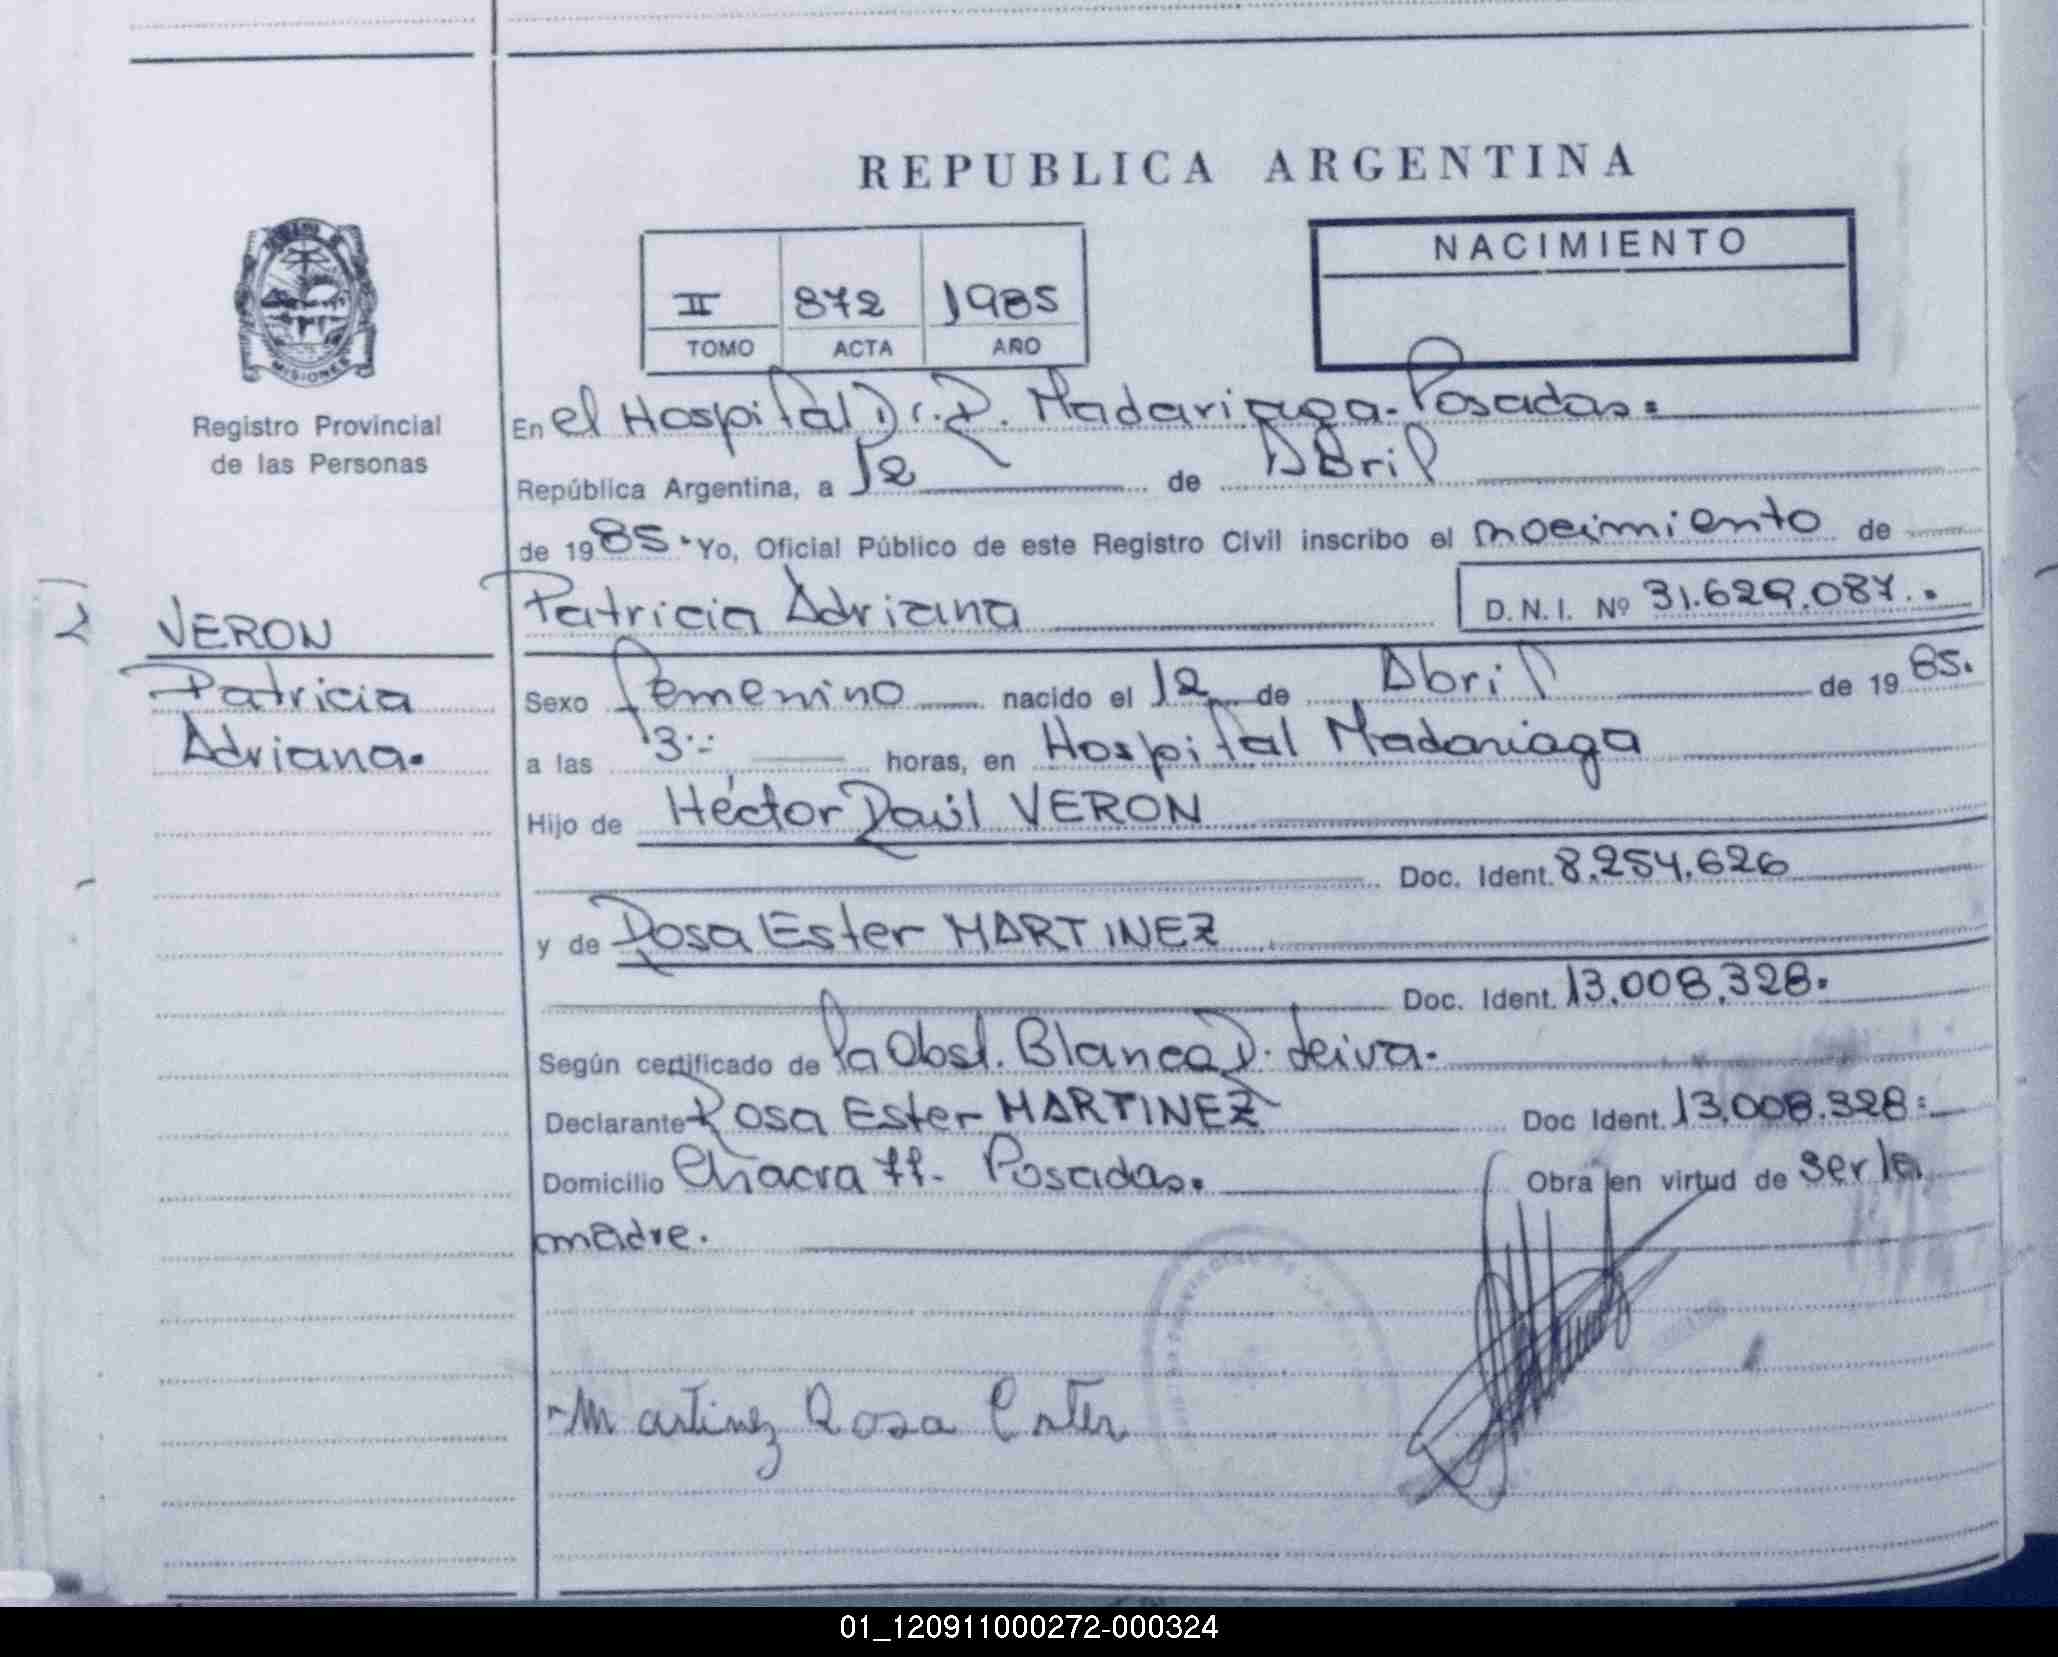 REPUBLICA ARGENTINA
NACIMIENTO
II 872 1985
TOMO ACTA AÑO
MISIONES
Registro Provincial
de las Personas
En el Hospital Dr. R. Madariaga. Posadas.
República Argentina, a 12 de Abril
de 1985. Yo, Oficial Público de este Registro Civil inscribo el nacimiento de
VERON
Patricia
Adriana.
Patricia Adriana D.N.I. Nº 31.629.087.
Sexo femenino nacido el 12 de Abril de 1985.
a las 3 horas, en Hospital Madariaga
Hijo de Héctor Raúl VERON
Doc. Ident. 8.254.626
y de Rosa Ester MARTINEZ
Doc. Ident. 13.008.328.
Según certificado de la Obst. Blanca D. Leiva.
Declarante Rosa Ester MARTINEZ Doc Ident. 13.008.328
Domicilio Chacra Posadas. Obra en virtud de ser la
madre.
Martinez Rosa Ester
01_120911000272-000324